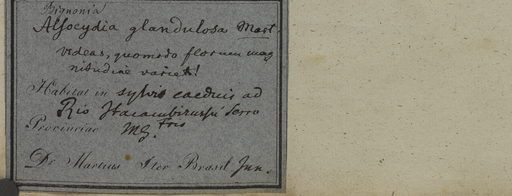 Bignonia
Alsocydia glandulosa Mart.
videas, quomodo florum mag
nitudine variet!
Habitat in sylvis caeduis ad
Rio Serro
Provinciae
Dr. Martius Iter Brasil. Jun.